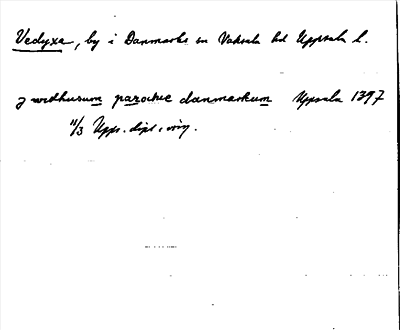 Vedyxa, by i Danmarks sn Vaksala hd Uppsala l.
j wedhusum parochie danmarkum Uppsala 1397
11/3 Upps. dipl. orig.